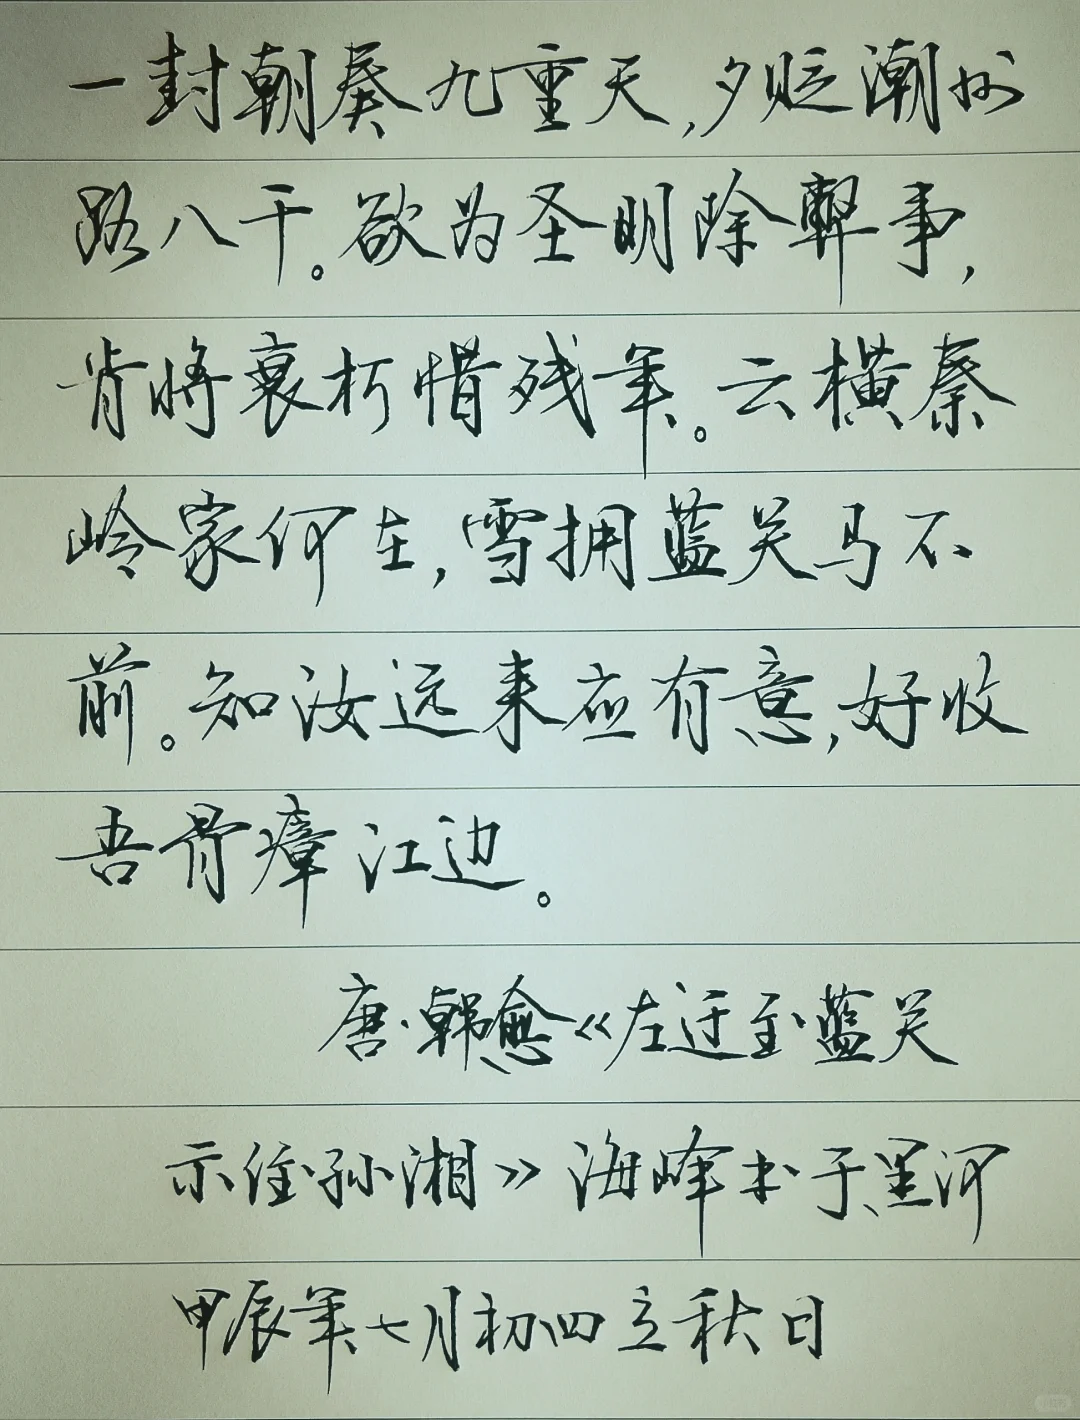 一封朝奏九重天,夕贬潮州
路八千。欲为圣明除弊事,
肯将衰朽惜残年。云横秦
岭家何在,雪拥蓝关马不
前。知汝远来应有意,好收
吾骨瘴江边。
唐·韩愈《左迁至蓝关
示侄孙湘》海峰书于黑河
甲辰年七月初四立秋日